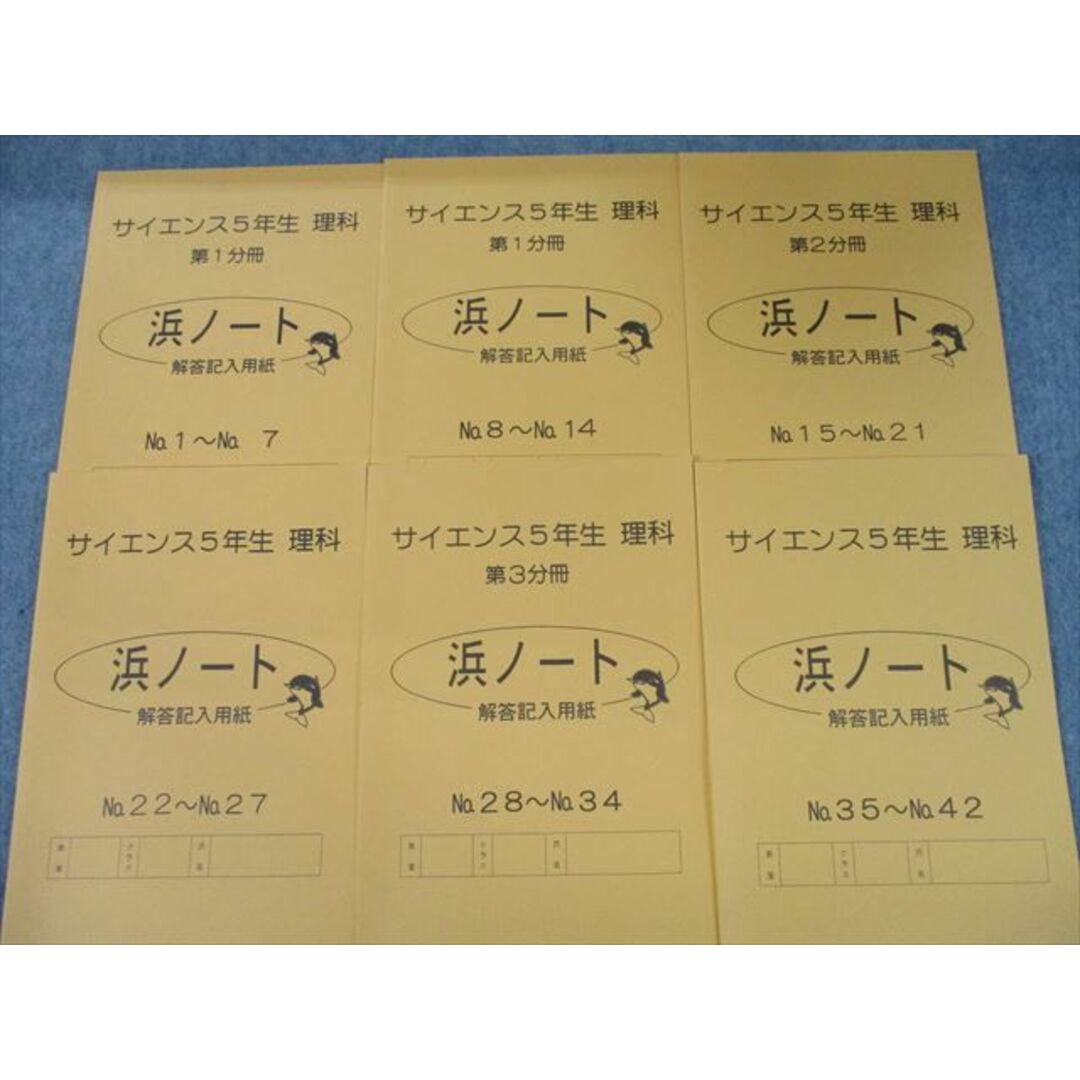 サイエンス5年生 理科
第1分冊
浜ノート
解答記入用紙
№1～№ 7
サイエンス5年生 理科
第1分冊
浜ノート
解答記入用紙
№8～№14
サイエンス5年生 理科
第2分冊
浜ノート
解答記入用紙
№15～№21
サイエンス5年生 理科
浜ノート
解答記入用紙
№22～№27
クラス
氏名
サイエンス5年生 理科
第3分冊
浜ノート
解答記入用紙
№28～№34
クラス
氏名
サイエンス5年生 理科
浜ノート
解答記入用紙
№35～№42
クラス
氏名